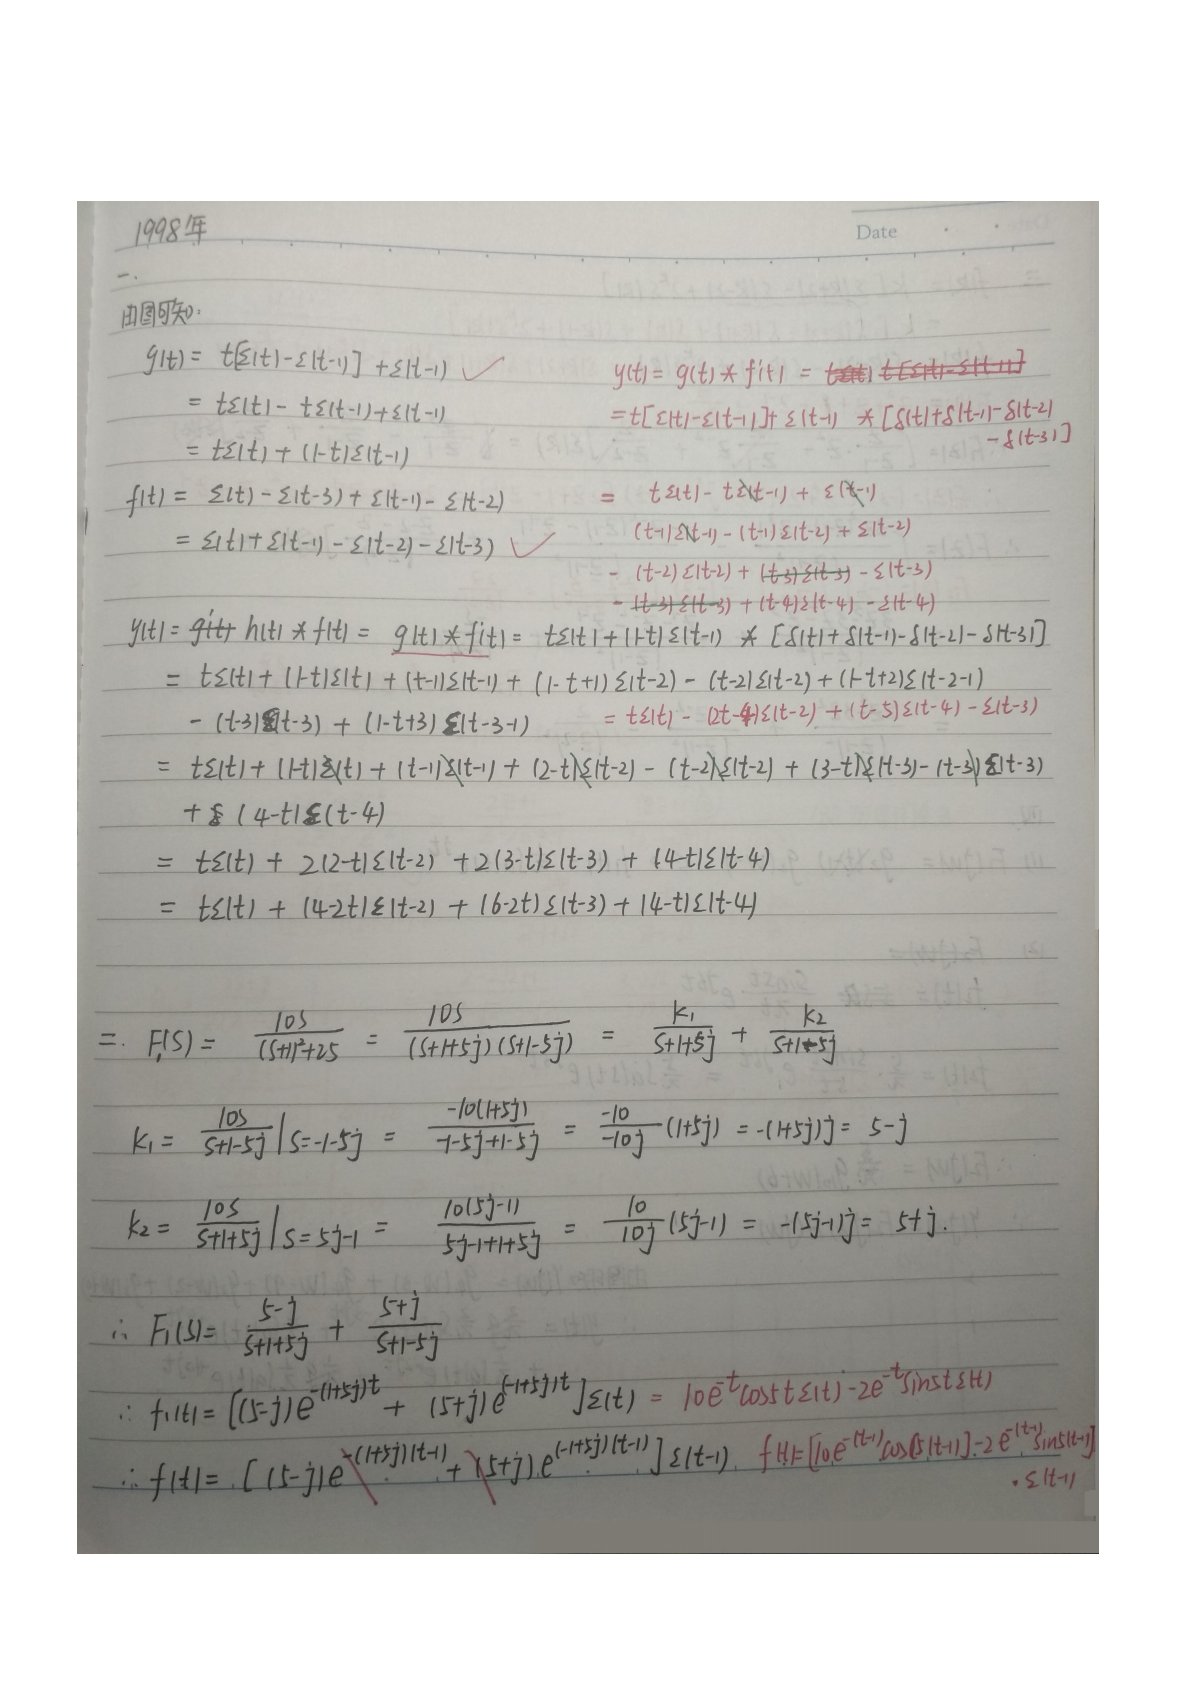 1998年
Date
一.
由图可知:
g(t) = t[ε(t)-ε(t-1)] +ε(t-1) ✓
= tε(t) - tε(t-1)+ε(t-1)
= tε(t) + (1-t)ε(t-1)
f(t) = ε(t) - ε(t-3) + ε(t-1) - ε(t-2)
= ε(t)+ε(t-1) - ε(t-2) - ε(t-3) ✓
y(t) = g(t) * f'(t) = tε(t) t[ε(t)-ε(t-1)]
=t[ε(t)-ε(t-1)]+ ε(t-1) * [δ(t)+δ(t-1)-δ(t-2)
-δ(t-3)]
= tε(t) - tε(t-1) + ε(t-1)
(t-1)ε(t-1) - (t-1)ε(t-2) + ε(t-2)
- (t-2)ε(t-2) + (t-3)ε(t-3) - ε(t-3)
- (t-3)ε(t-3) + (t-4)ε(t-4) - ε(t-4)
y(t) = g'(t) h(t) * f(t) = g(t) * f'(t) = tε(t) + (1-t)ε(t-1) * [δ(t) + δ(t-1)-δ(t-2)-δ(t-3)]
= tε(t) + (1-t)ε(t) + (t-1)ε(t-1) + (1-t+1)ε(t-2) - (t-2)ε(t-2) + (1-t+2)ε(t-2-1)
- (t-3)ε(t-3) + (1-t+3)ε(t-3-1) = tε(t) - (2t-4)ε(t-2) + (t-5)ε(t-4) - ε(t-3)
= tε(t) + (1-t)ε(t) + (t-1)ε(t-1) + (2-t)ε(t-2) - (t-2)ε(t-2) + (3-t)ε(t-3) - (t-3)ε(t-3)
+ (4-t)ε(t-4)
= tε(t) + 2(2-t)ε(t-2) +2(3-t)ε(t-3) + (4-t)ε(t-4)
= tε(t) + (4-2t)ε(t-2) + (6-2t)ε(t-3) + (4-t)ε(t-4)
二. F₁(S) = 10S/((S+1)²+25) = 10S/((S+1+5j)(S+1-5j)) = K₁/(S+1+5j) + K₂/(S+1-5j)
K₁ = 10S/(S+1-5j) | S=-1-5j = -10(1+5j)/(-1-5j+1-5j) = -10/-10j (1+5j) = -(1+5j)j = 5-j
K₂ = 10S/(S+1+5j) | S=5j-1 = 10(5j-1)/(5j-1+1+5j) = 10/10j (5j-1) = -(5j-1)j = 5+j.
∴ F₁(S) = (5-j)/(S+1+5j) + (5+j)/(S+1-5j)
∴ f₁(t) = [(5-j)e^{-(1+5j)t} + (5+j)e^{(-1+5j)t}]ε(t) = 10e^{-t}cos5tε(t)-2e^{-t}sin5tε(t)
∴ f(t) = [(5-j)e^{-(1+5j)(t-1)} + (5+j)e^{(-1+5j)(t-1)}]ε(t-1). f(t)=[10e^{-(t-1)}cos[5(t-1)]-2e^{-(t-1)}sin5(t-1)]
·ε(t-1)